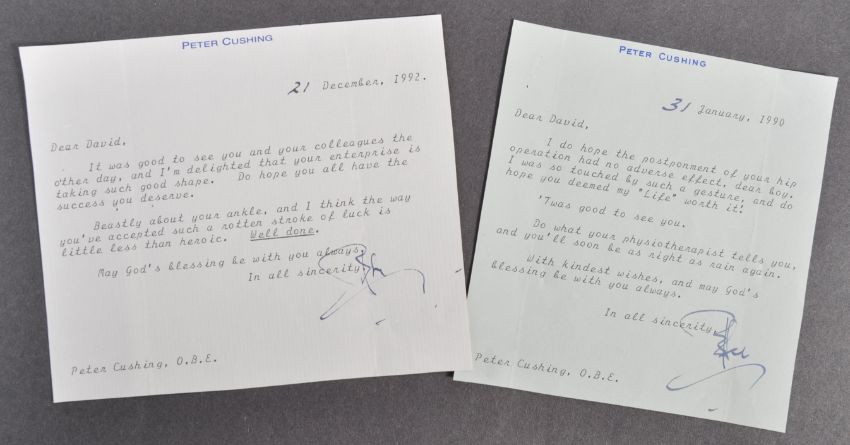 PETER CUSHING
21 December, 1992.
Dear David,
It was good to see you and your colleagues the
other day, and I'm delighted that your enterprise is
taking such good shape. Do hope you all have the
success you deserve.
Beastly about your ankle, and I think the way
you've accepted such a rotten stroke of luck is
little less than heroic. Well done.
May God's blessing be with you always.
In all sincerity,
Peter Cushing, O.B.E.
PETER CUSHING
31 January, 1990
Dear David,
I do hope the postponment of your hip
operation had no adverse effect, dear boy.
I was so touched by such a gesture, and do
hope you deemed my "Life" worth it!
'Twas good to see you.
Do what your physiotherapist tells you,
and you'll soon be as right as rain again.
With kindest wishes, and may God's
blessing be with you always.
In all sincerity,
Peter Cushing, O.B.E.